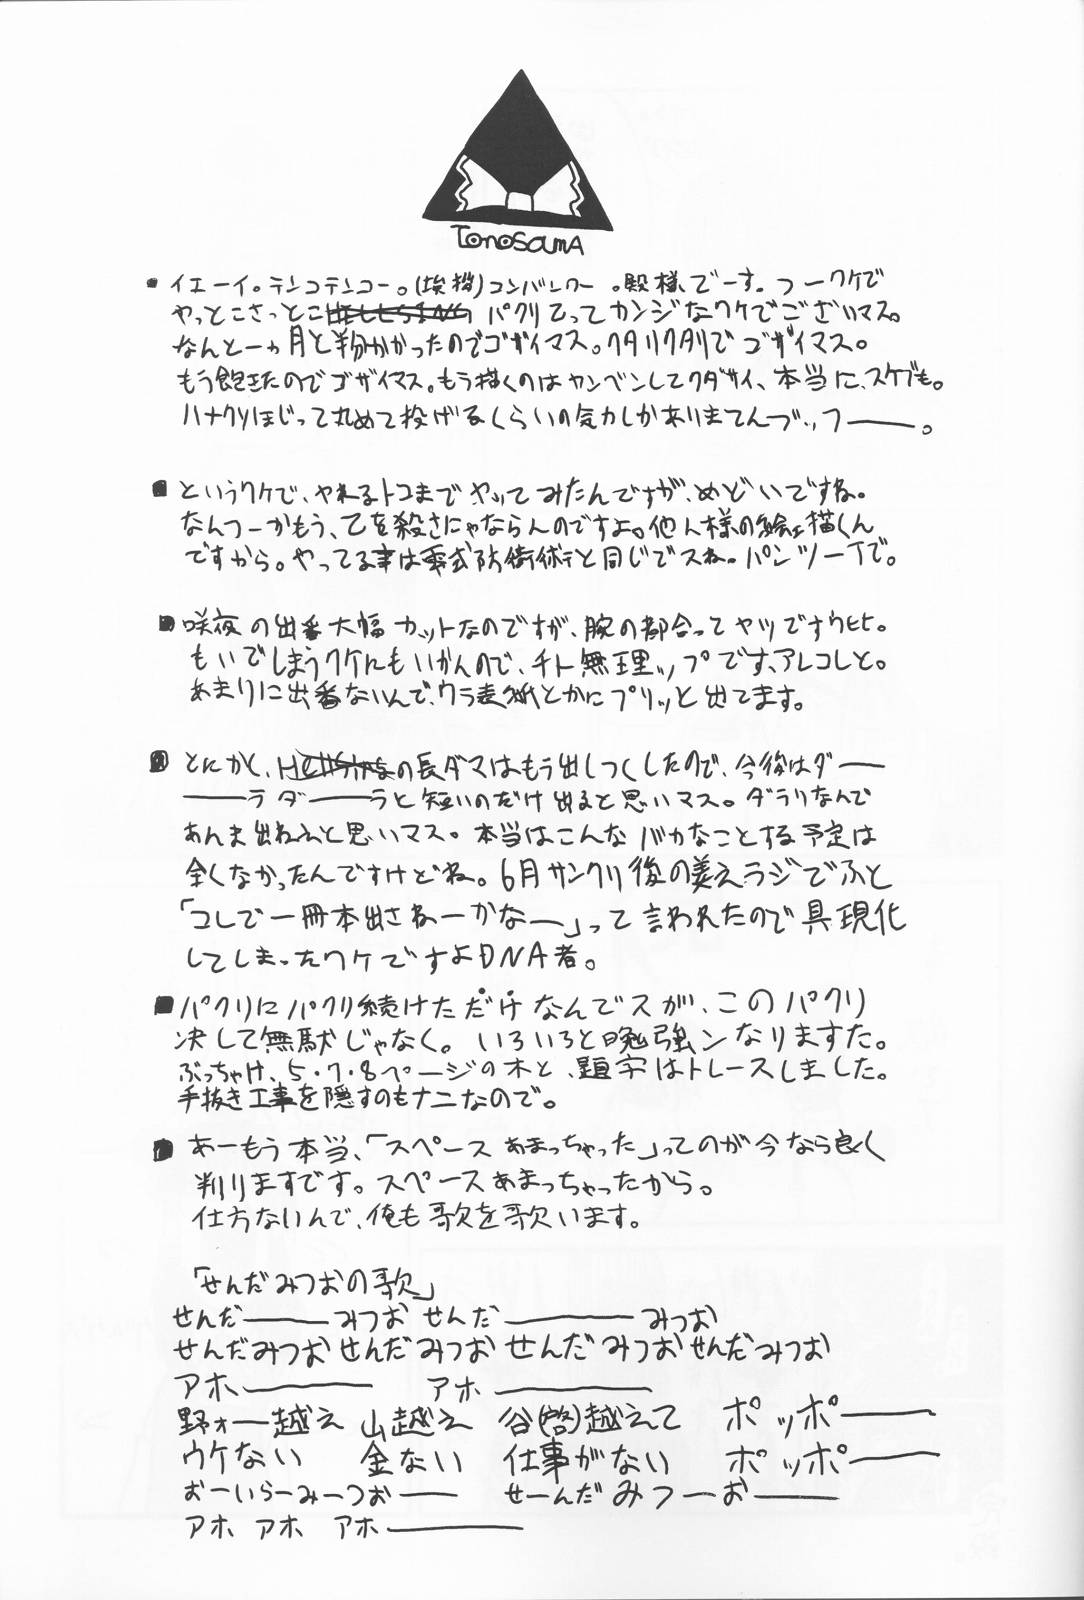 TonosamA
・イエーイ。テンコテンコー。(挨拶)コンバンワー。殿様でーす。つーワケで
やっとこさっとこHELLSINGパクリてってカンジなワケでございマス。
なんと一ヵ月と半分かかったのでゴザイマス。クタリクタリでゴザイマス。
もう飽きたのでゴザイマス。もう描くのはカンベンしてクダサイ、本当に、スケブも。
ハナクソほじって丸めて投げるくらいの気力しかありまてんブッフ――。
■というワケで、やれるトコまでヤッてみたんですが、めどいですね。
なんつーかもう、乙を殺さにゃならんのですよ。他人様の絵描くん
ですから。やってる事は零式防衛術と同じでスね。パンツ一丁で。
■咲夜の出番大幅カットなのですが、腕の都合ってヤツですウヒヒ。
もいでしまうワケにもいかんので、チト無理ップです、アレコレと。
あまりに出番ないんで、ウラ表紙とかにプリッと出てます。
■とにかく、Hellsingの長ダマはもう出しつくしたので、今後はダー―
――ラダー――ラと短いのだけ出ると思いマス。ダラリなんで
あんま出ねぇと思いマス。本当はこんなバカなことする予定は
全くなかったんですけどね。6月サンクリ後の美えラジでふと
「コレで一冊本出さねーかなー」って言われたので具現化
してしまったワケですよDNA者。
■パクリにパクリ続けただけなんでスが、このパクリ
決して無駄じゃなく。いろいろと勉強ンなりますた。
ぶっちゃけ、5・7・8ページの木と、題字はトレースしました。
手抜き工事を隠すのもナニなので。
■あーもう本当、「スペースあまっちゃった」ってのが今なら良く
判りますです。スペースあまっちゃったから。
仕方ないんで、俺も歌を歌います。
「せんだみつおの歌」
せんだ―――みつお せんだ―――みつお
せんだみつお せんだみつお せんだみつお せんだみつお
アホ――― アホ―――
野ォー越え 山越え 谷(啓)越えて ポッポ――
ウケない 金ない 仕事がない ポッポ――
おーいらーみーつおー― せーんだみつーおー―
アホ アホ アホ―――